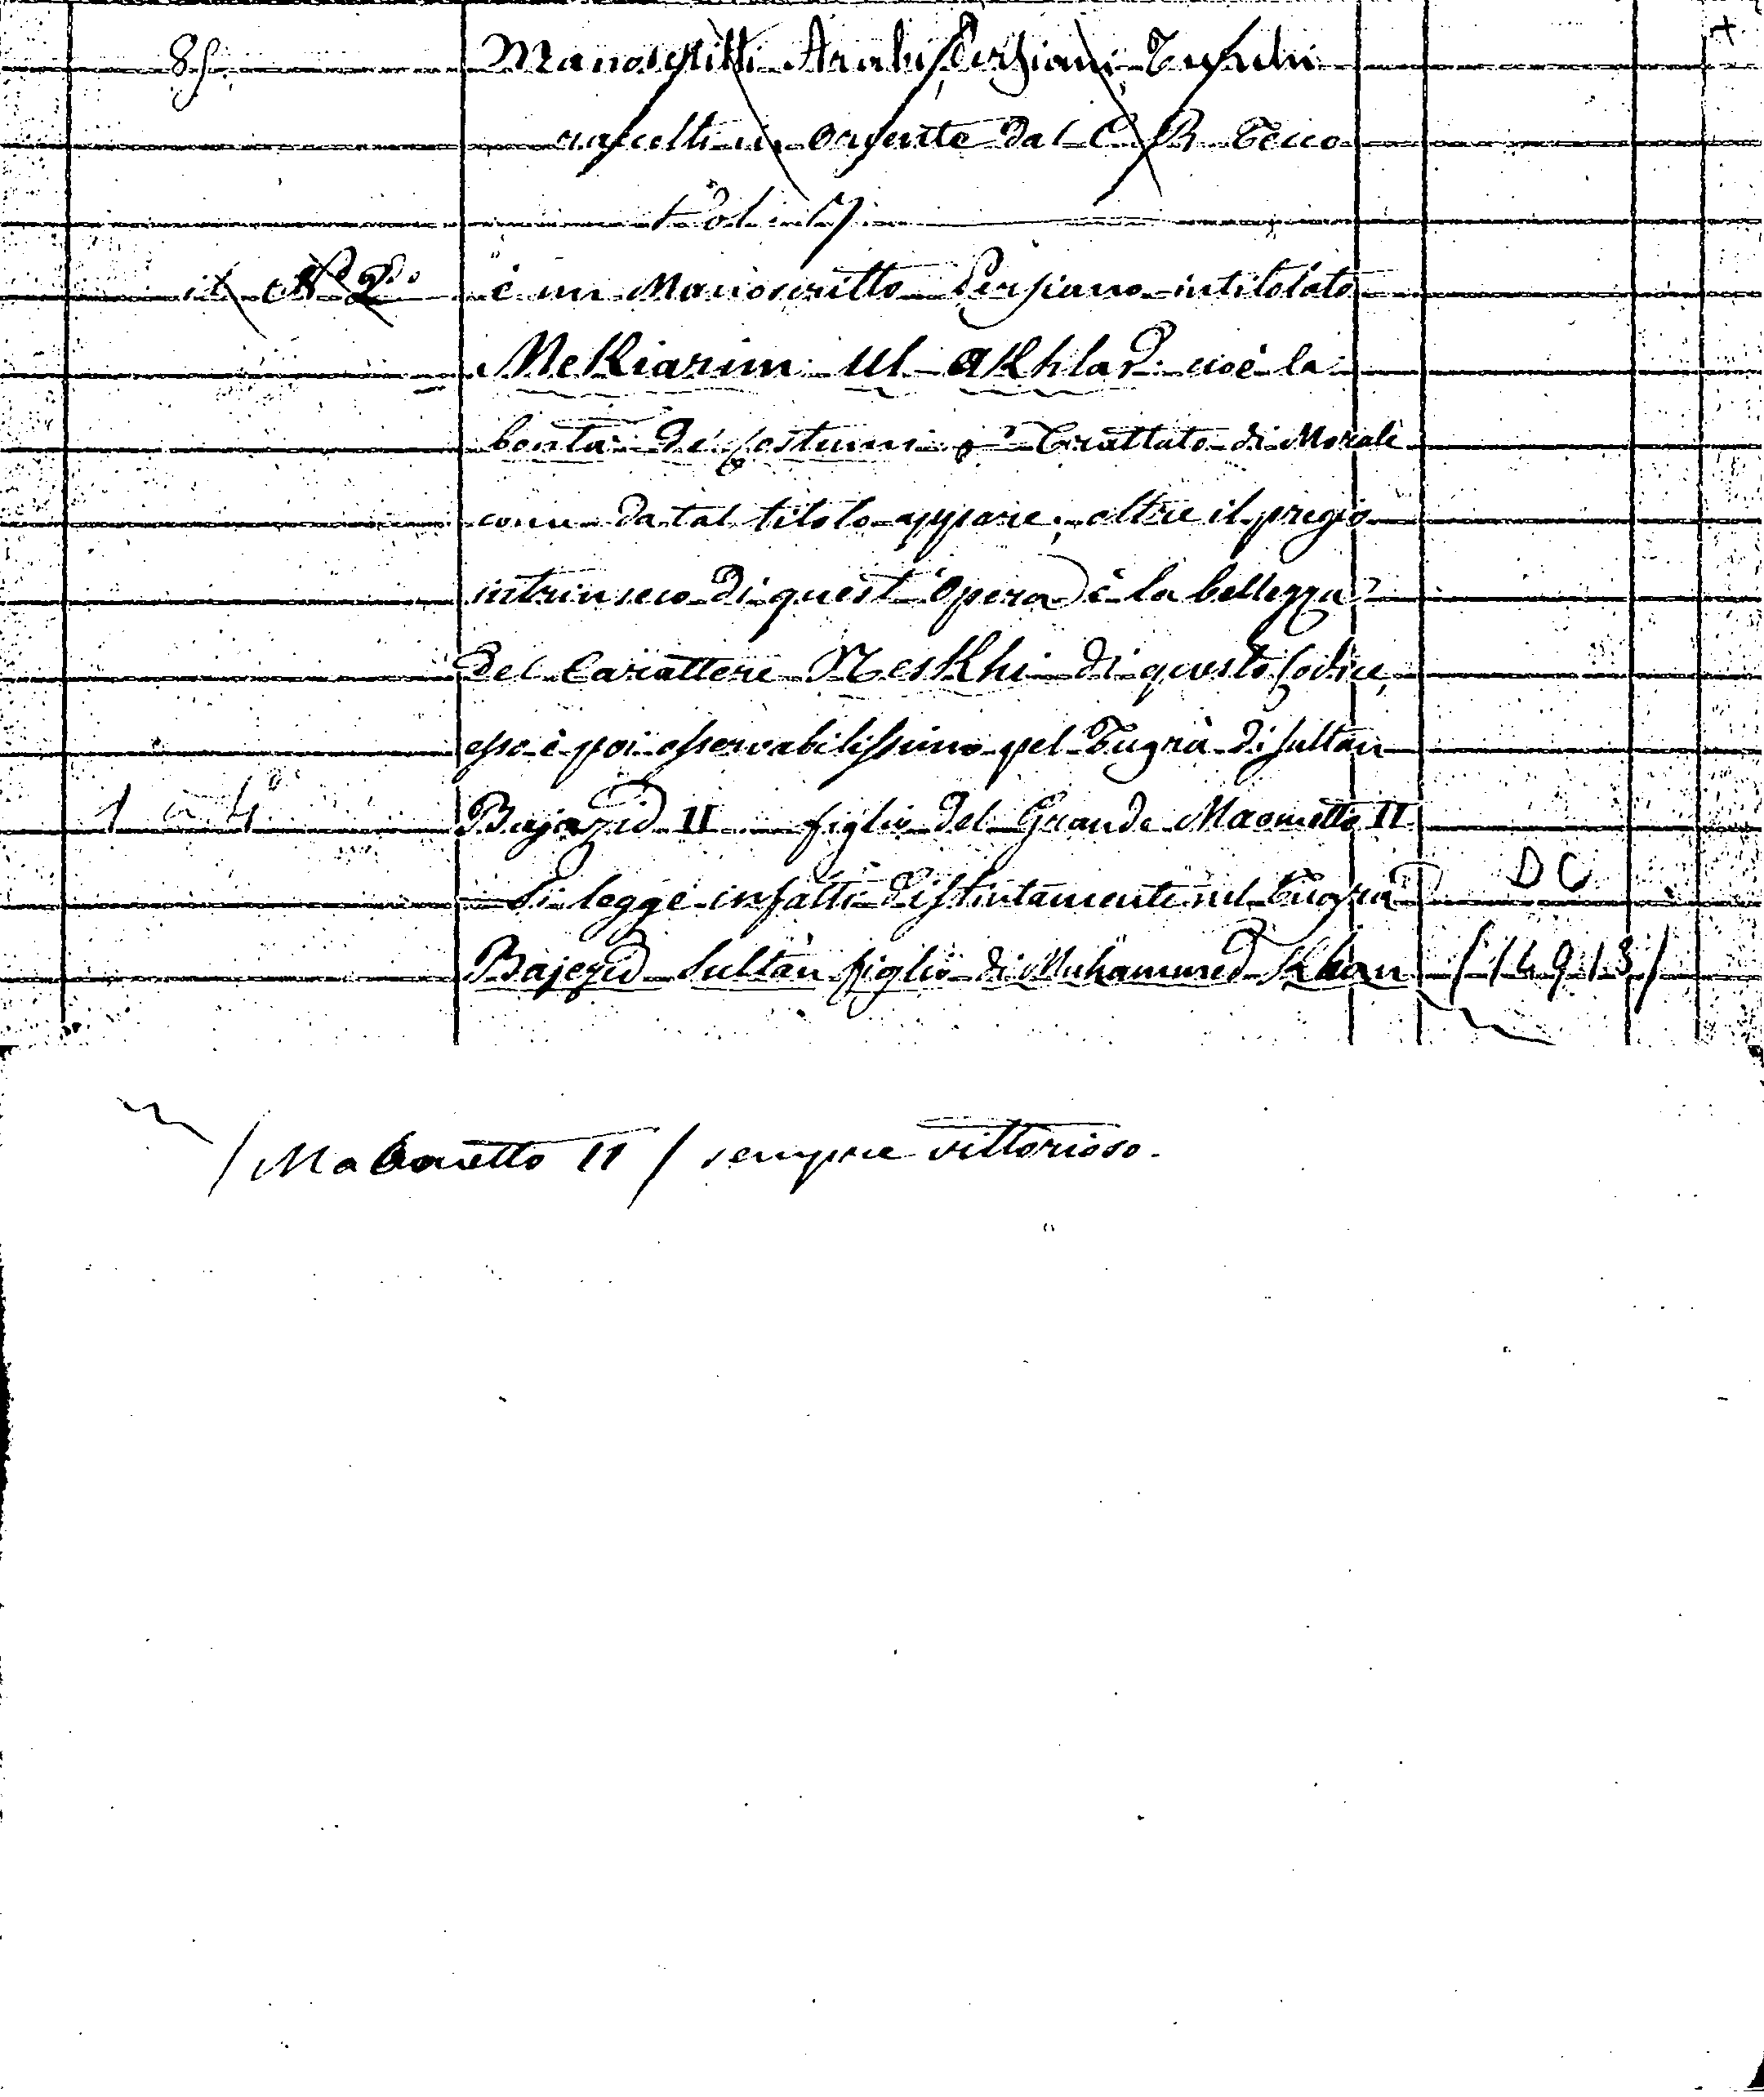 85 Manoscritti Arabi Persiani Turchi +
raccolti in Oriente dal C. B. Tecco
il N. 2º è un Manoscritto Persiano intitolato
MeKiarim Ul aKhlaq cioè la
bontà de' Costumi o Trattato di Morale
come da tal titolo appare. oltre il pregio
intrinseco di quest'Opera è la bellezza
del Carattere NesKhi di questo Codice,
esso è poi osservabilissimo pel Tugrà di Sultan
1 a 4 Bajazid II figlio del Grande Maometto II
Si legge infatti distintamente nel Tugra DC
Bajezid Sultan figlio di Muhammed Khan (14913)
/ Maometto II / sempre vittorioso.